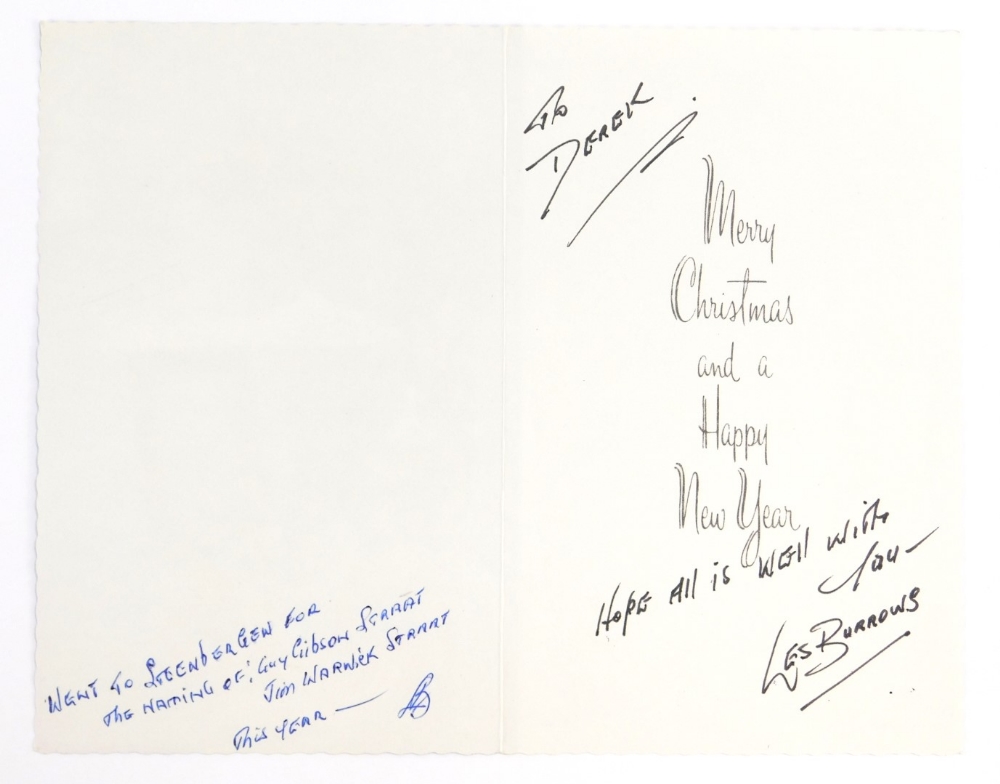 WENT TO STEENBERGEN FOR
THE NAMING OF: GUY GIBSON STRAAT
JIM WARWICK STRAAT
THIS YEAR —
LB
TO
DEREK
Merry
Christmas
and a
Happy
New Year
HOPE All is WEll WITH
YOU —
LES BURROWS